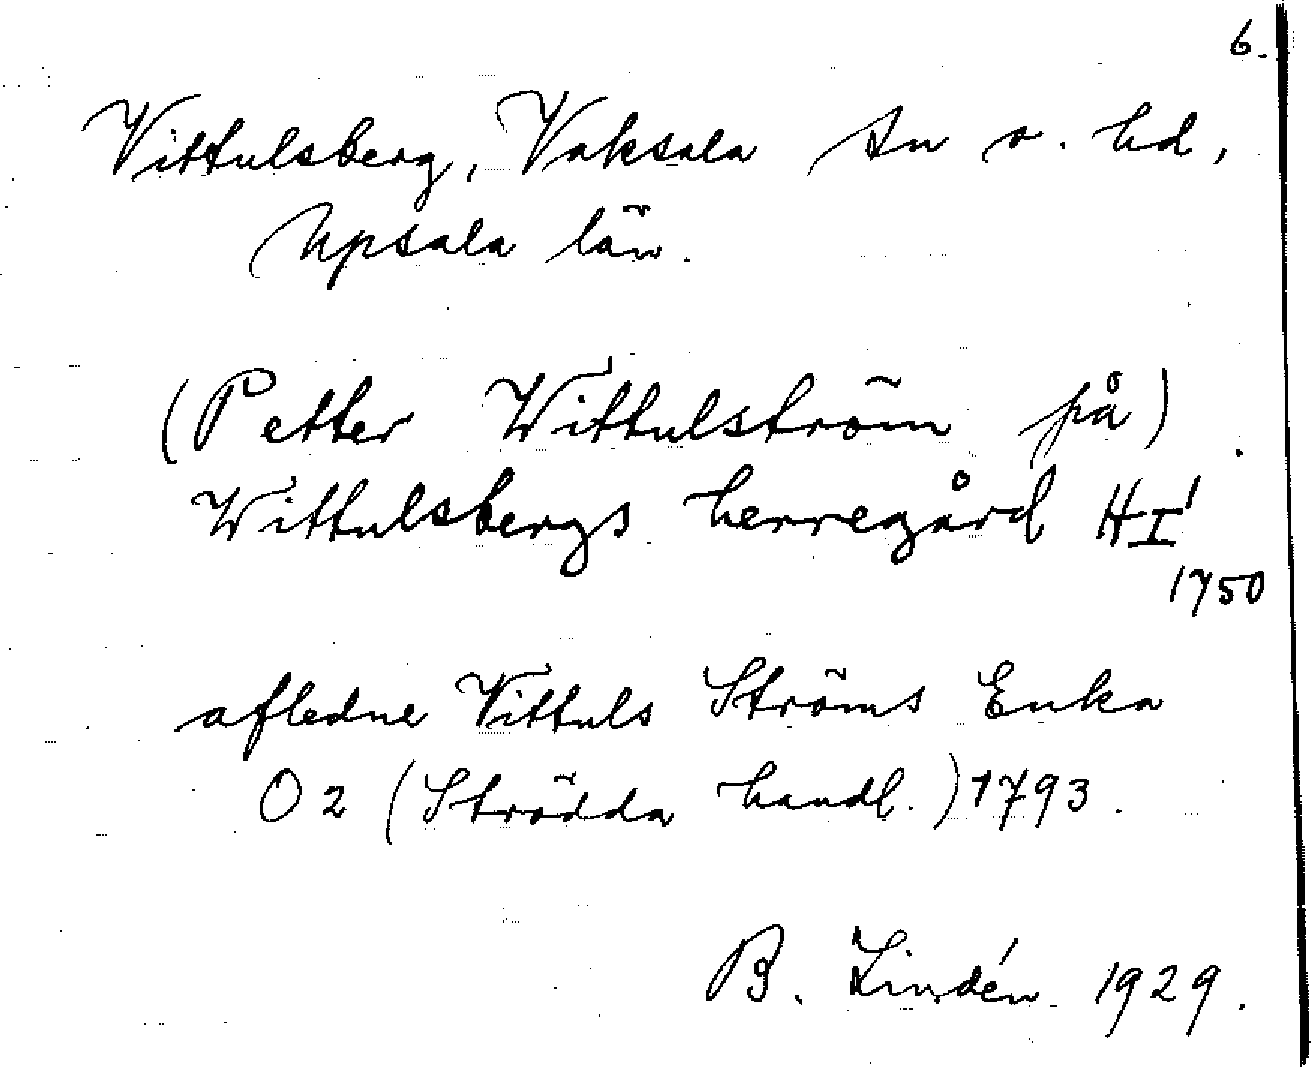 6.
Vittulsberg, Vaksala sn o. hd,
Upsala län.
(Petter Wittulström på)
Wittulsbergs herregård HI'
1750
afledne Vittuls Ströms Enka
O2 (Strödda handl.) 1793.
B. Lindén 1929.